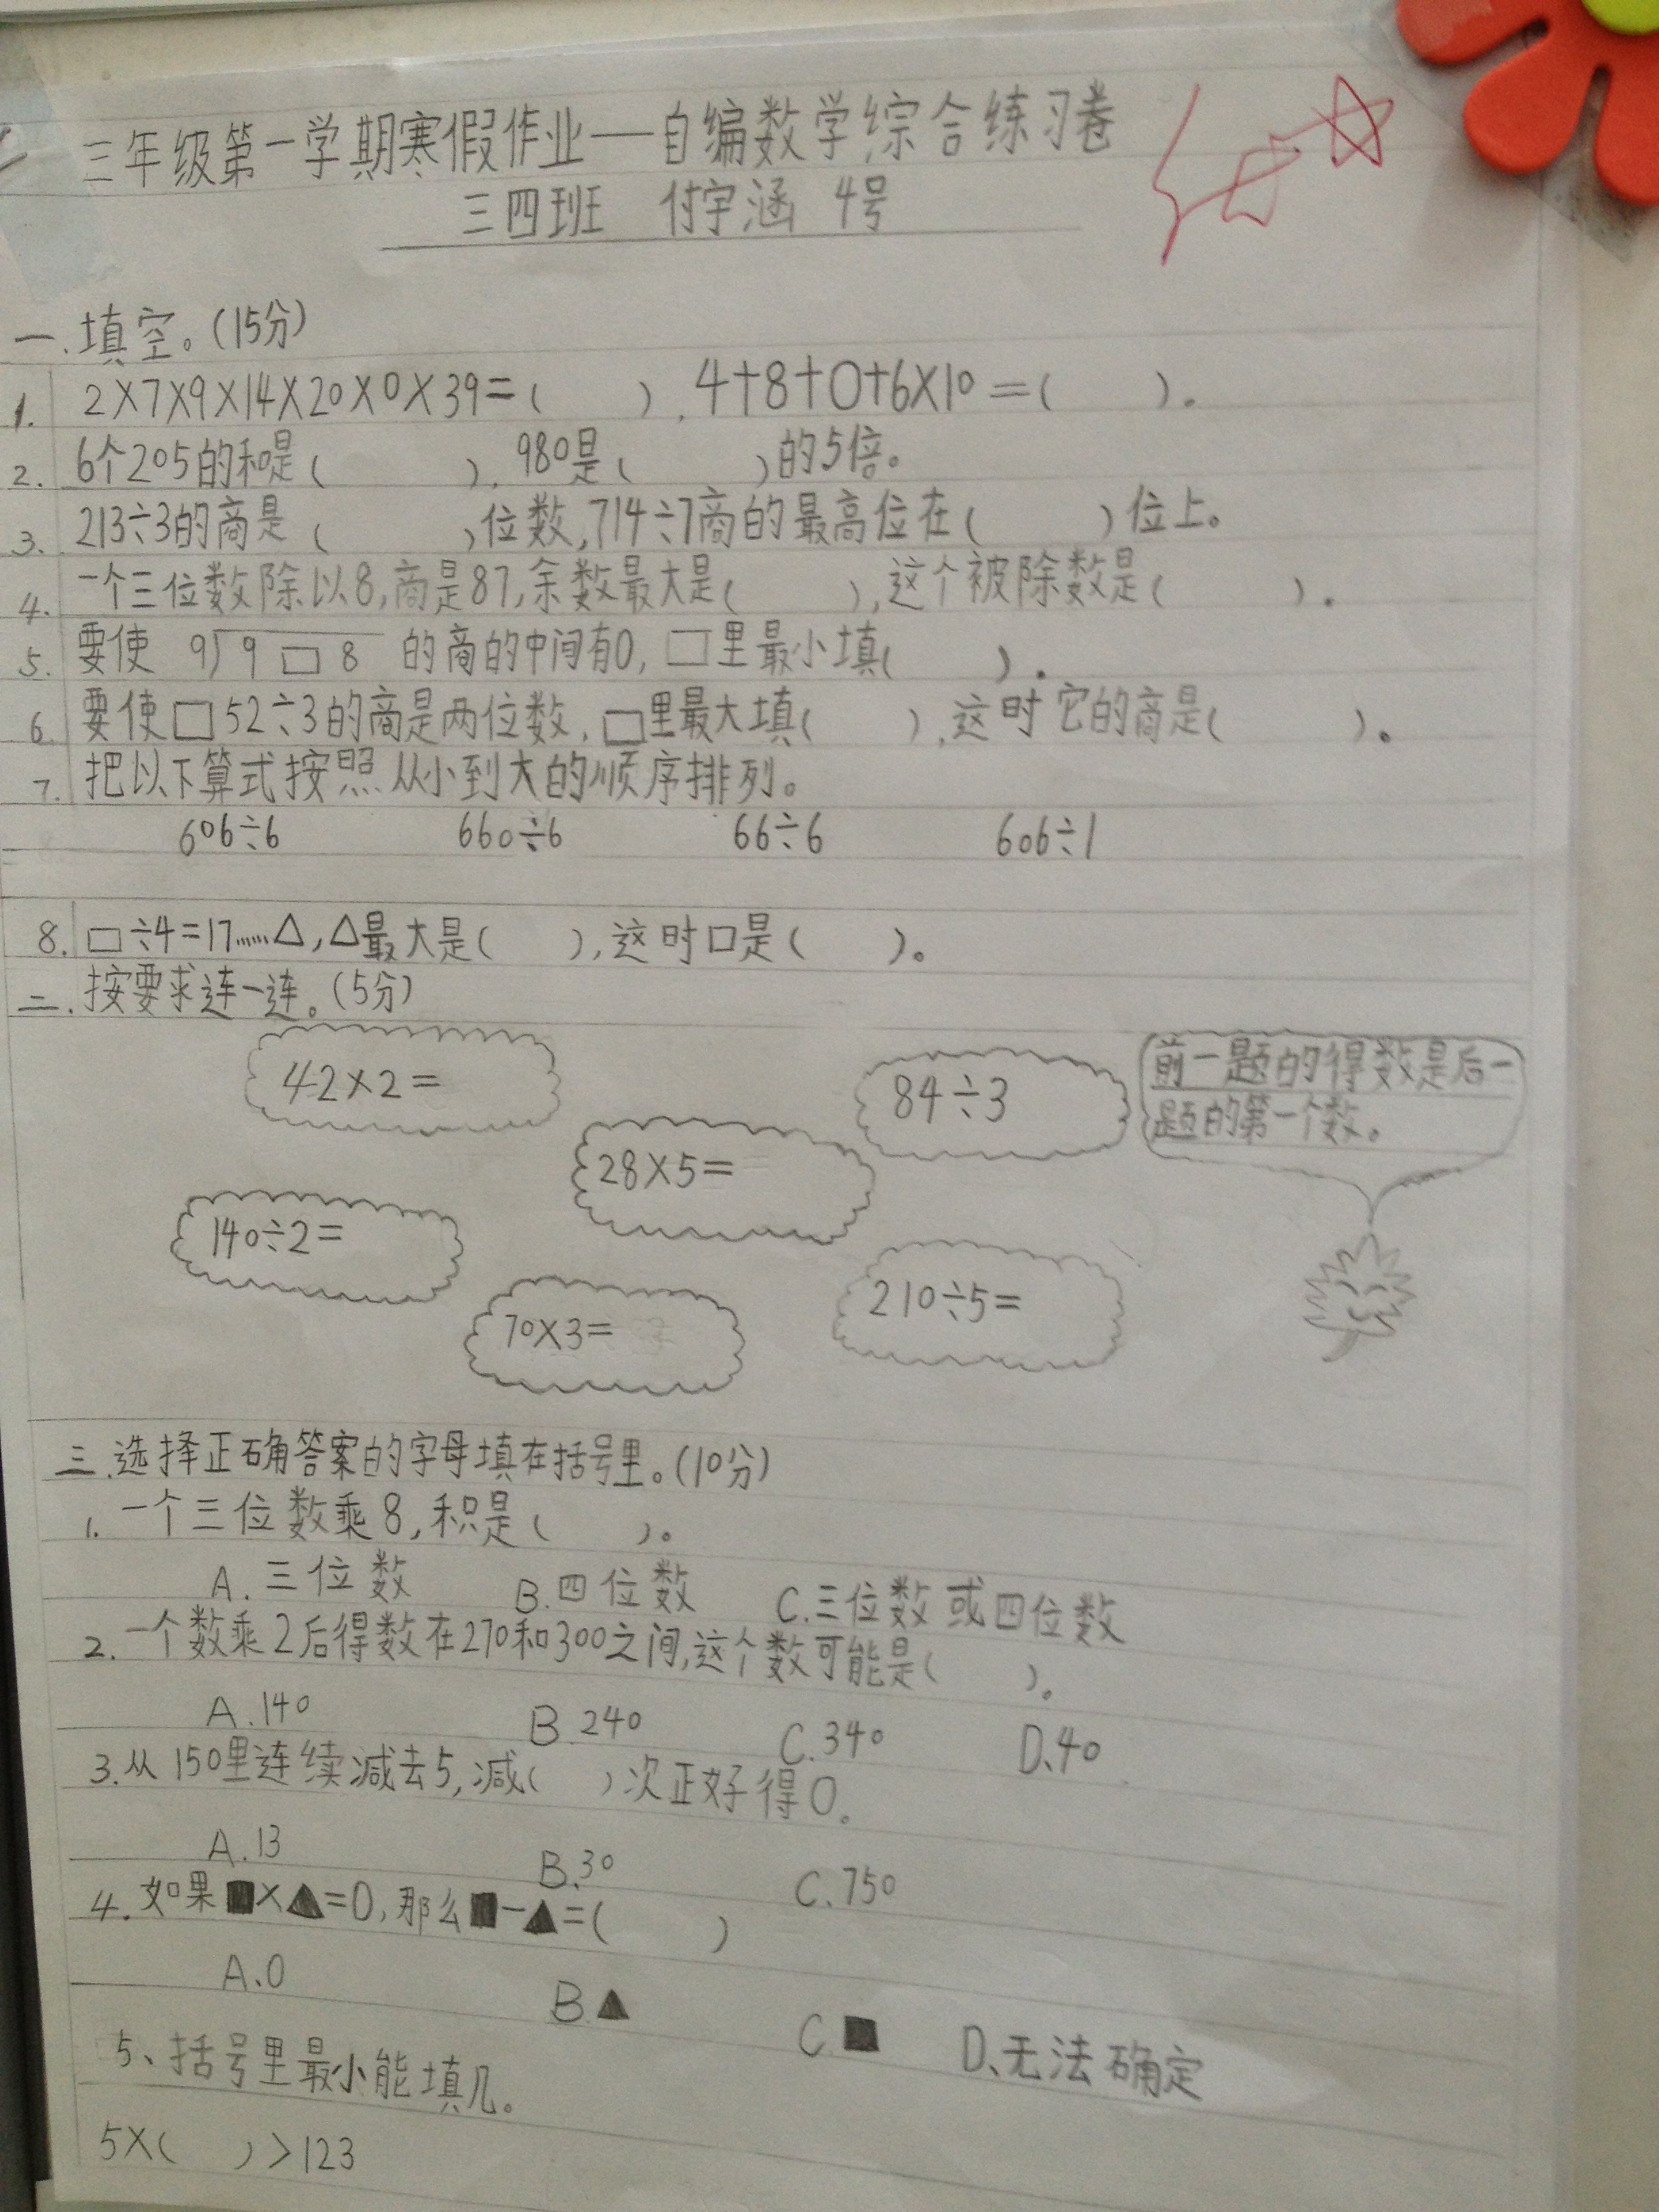 三年级第一学期寒假作业——自编数学综合练习卷
三四班 付宇涵 4号
一.填空。(15分)
1. 2×7×9×14×20×0×39=( ),4+8+0+6×10=( )。
2. 6个205的和是( ),980是( )的5倍。
3. 213÷3的商是( )位数,714÷7商的最高位在( )位上。
4. 一个三位数除以8,商是87,余数最大是( ),这个被除数是( )。
5. 要使 9)9□8 的商的中间有0,□里最小填( )。
6. 要使□52÷3的商是两位数,□里最大填( ),这时它的商是( )。
7. 把以下算式按照从小到大的顺序排列。
606÷6 660÷6 66÷6 606÷1
8. □÷4=17……△,△最大是( ),这时口是( )。
二.按要求连一连。(5分)
42×2=
84÷3
前一题的得数是后一
题的第一个数。
28×5=
140÷2=
210÷5=
70×3=
三.选择正确答案的字母填在括号里。(10分)
1. 一个三位数乘8,积是( )。
A.三位数 B.四位数 C.三位数或四位数
2. 一个数乘2后得数在270和300之间,这个数可能是( )。
A.140 B.240 C.340 D.40
3.从150里连续减去5,减( )次正好得0。
A.13 B.30 C.750
4.如果■×▲=0,那么■-▲=( )
A.0 B.▲ C■ D、无法确定
5、括号里最小能填几。
5×( )>123